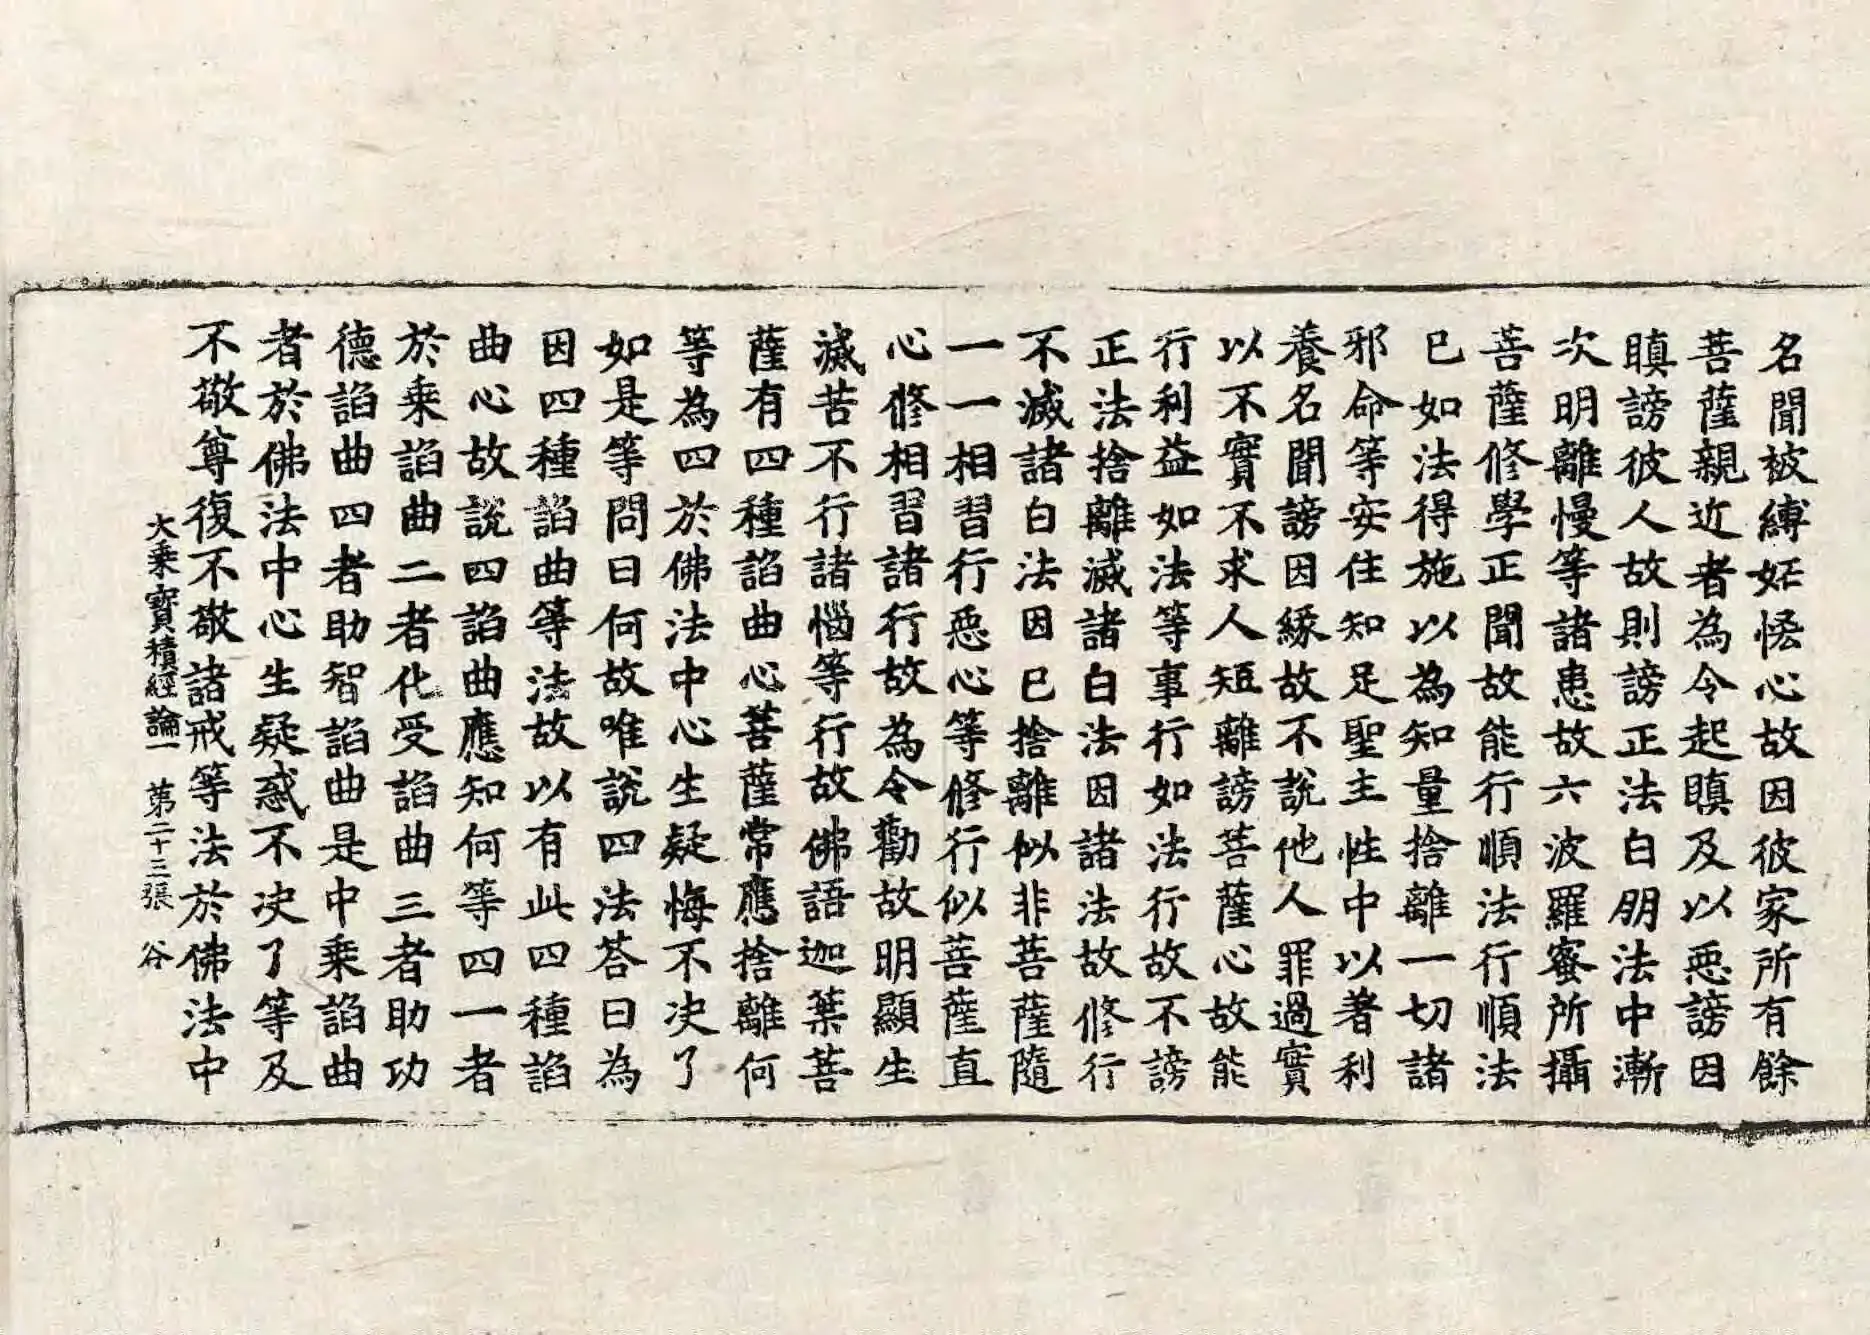 名聞被縛妬悋心故因彼家所有餘
菩薩親近者為令起瞋及以惡謗因
瞋謗彼人故則謗正法白朋法中漸
次明離慢等諸患故六波羅蜜所攝
菩薩修學正聞故能行順法行順法
已如法得施以為知量捨離一切諸
邪命等安住知足聖主性中以著利
養名聞謗因緣故不說他人罪過實
以不實不求人短離謗菩薩心故能
行利益如法等事行如法行故不謗
正法捨離滅諸白法因諸法故修行
不滅諸白法因已捨離似非菩薩隨
一一相習行惡心等修行似菩薩直
心修相習諸行故為令勸故明顯生
滅苦不行諸惱等行故佛語迦葉菩
薩有四種諂曲心菩薩常應捨離何
等為四於佛法中心生疑悔不决了
如是等問曰何故唯說四法荅曰為
因四種諂曲等法故以有此四種諂
曲心故說四諂曲應知何等四一者
於乘諂曲二者化受諂曲三者助功
德諂曲四者助智諂曲是中乘諂曲
者於佛法中心生疑惑不决了等及
不敬尊復不敬諸戒等法於佛法中
大乘寶積經論一 第二十三張 谷